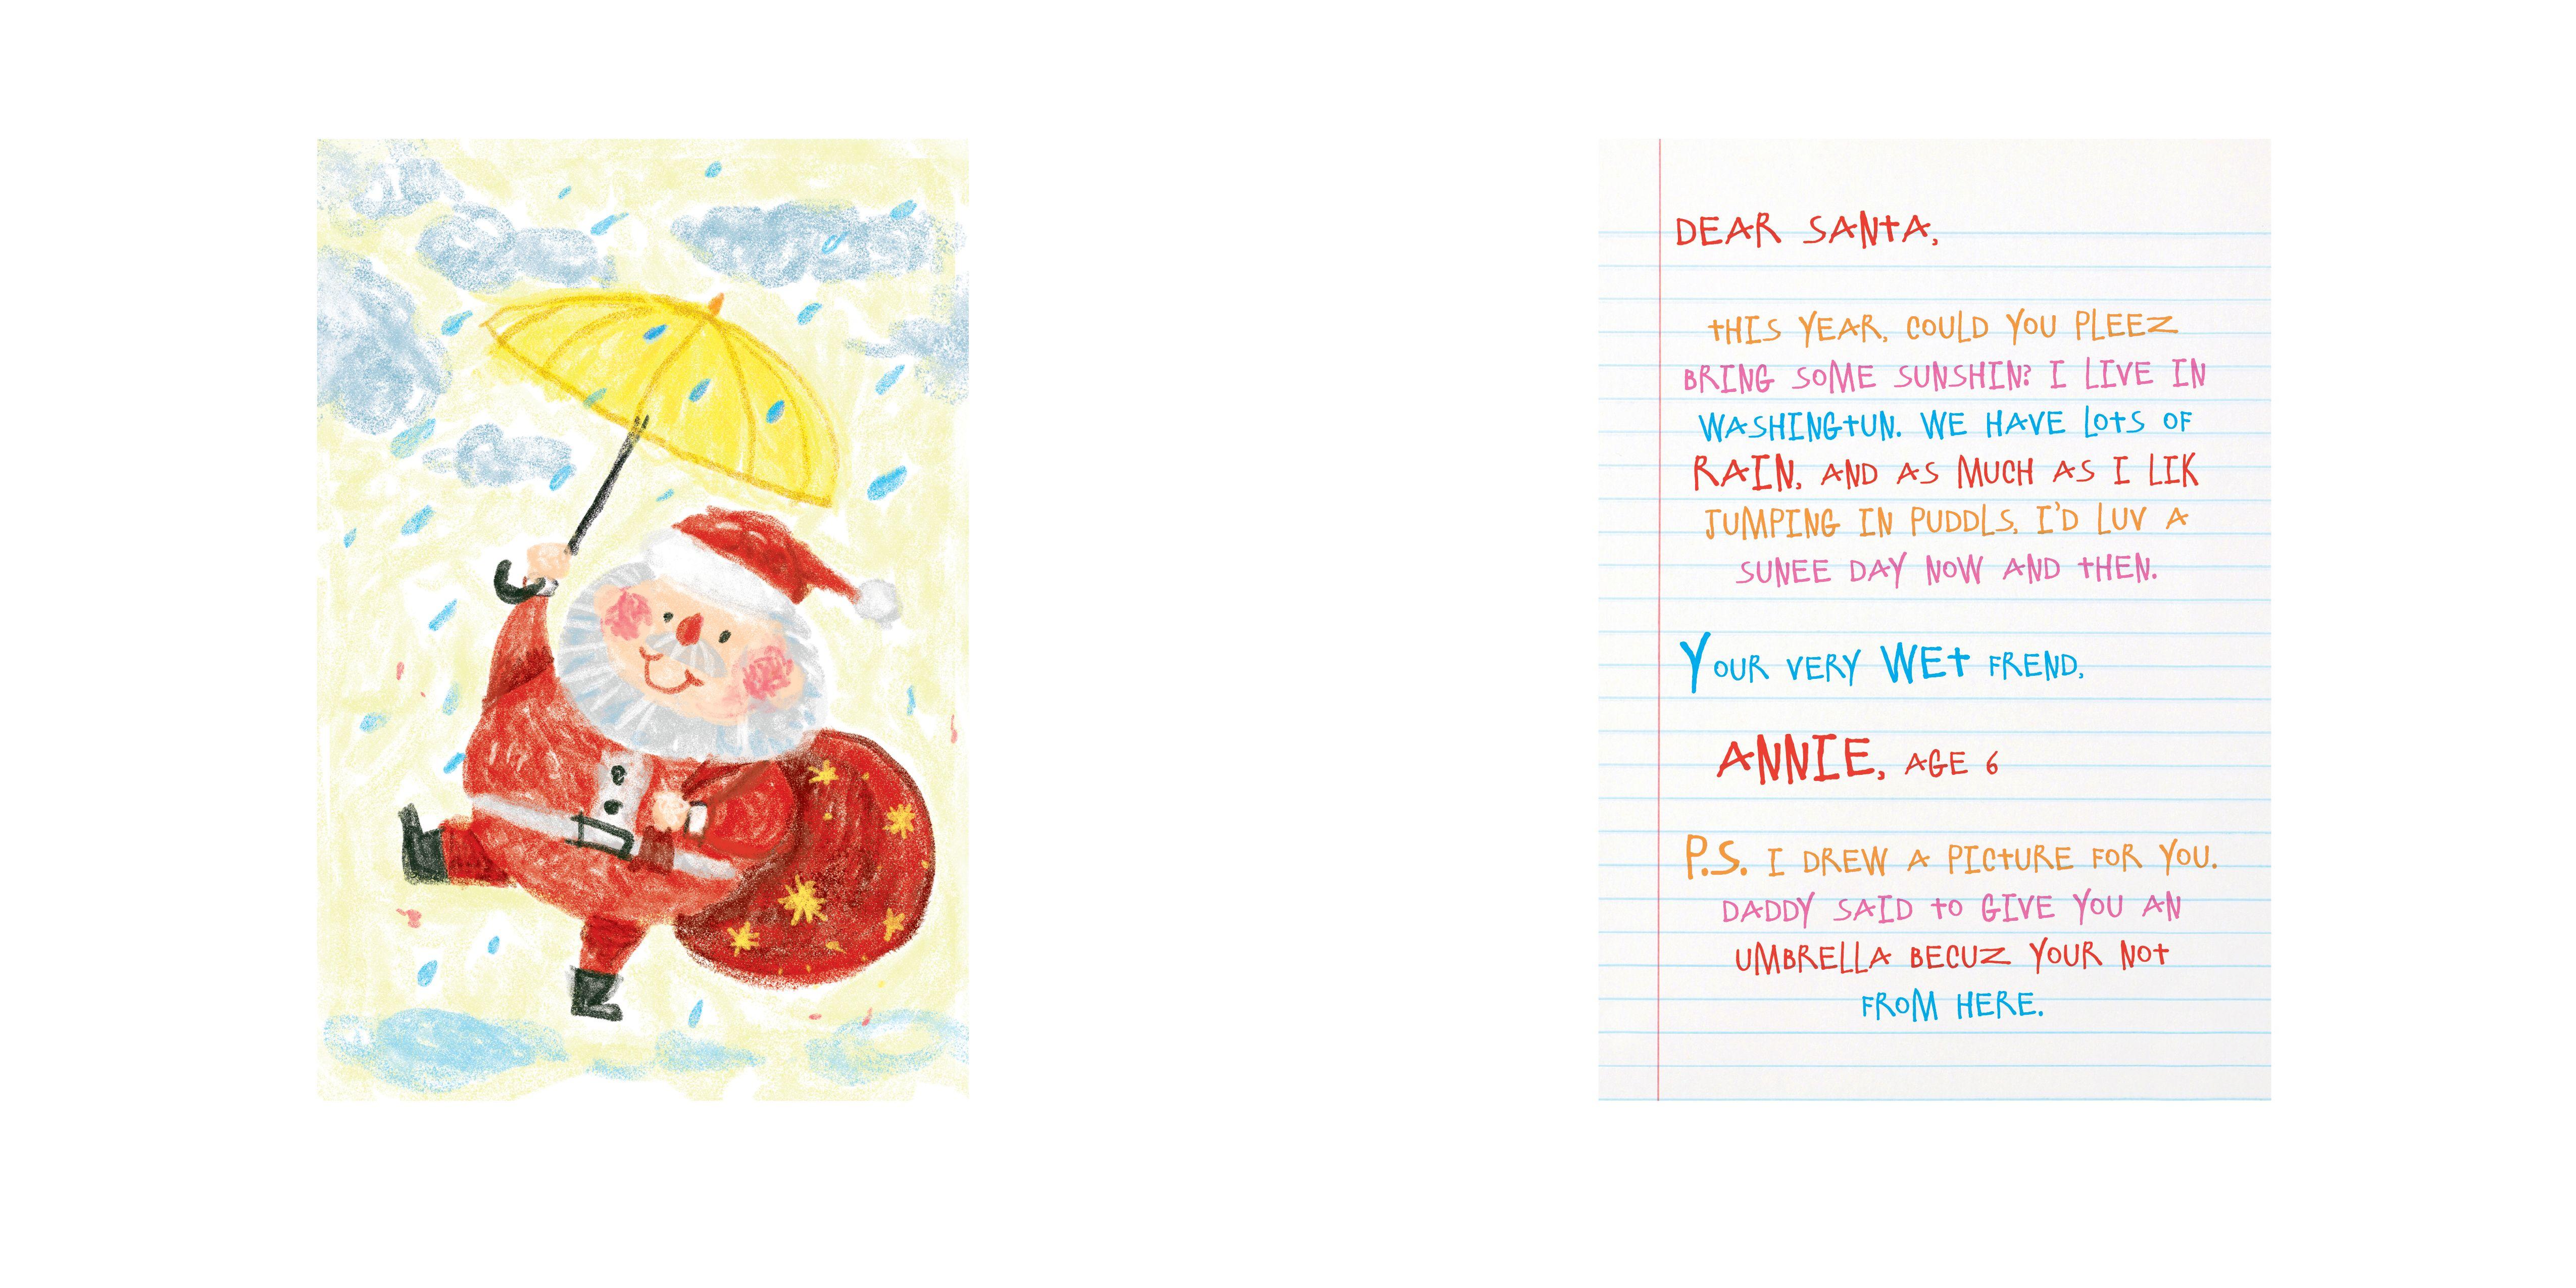 DEAR SANTA,
THIS YEAR, COULD YOU PLEEZ
BRING SOME SUNSHIN? I LIVE IN
WASHINGTUN. WE HAVE LOTS OF
RAIN, AND AS MUCH AS I LIK
JUMPING IN PUDDLS, I'D LUV A
SUNEE DAY NOW AND THEN.
YOUR VERY WET FREND,
ANNIE, AGE 6
P.S. I DREW A PICTURE FOR YOU.
DADDY SAID TO GIVE YOU AN
UMBRELLA BECUZ YOUR NOT
FROM HERE.